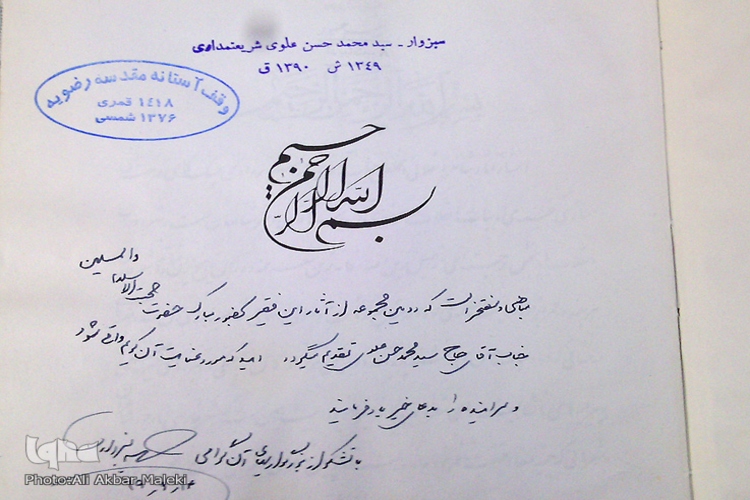 سبزوار - سید محمد حسن علوی شریعتمداری
۱۳۴۹ ش ۱۳۹۰ ق
وقف آستانه مقدسه رضویه
۱۴۱۸ قمری
۱۳۷۶ شمسی
بسم الله الرحمن الرحیم
والمسلمین
مباهی و مفتخر است که دومین مجموعه از آثار این فقیر بحضور مبارک حضرت حجت‌الاسلام
جناب آقای حاج سید محمد حسن علوی تقدیم میگردد امید که مورد عنایت آن کریم واقع شود
و سراینده را بدعای خیر یاد فرمایند
با تشکر از آن گرامی
Photo:Ali Akbar.Maleki